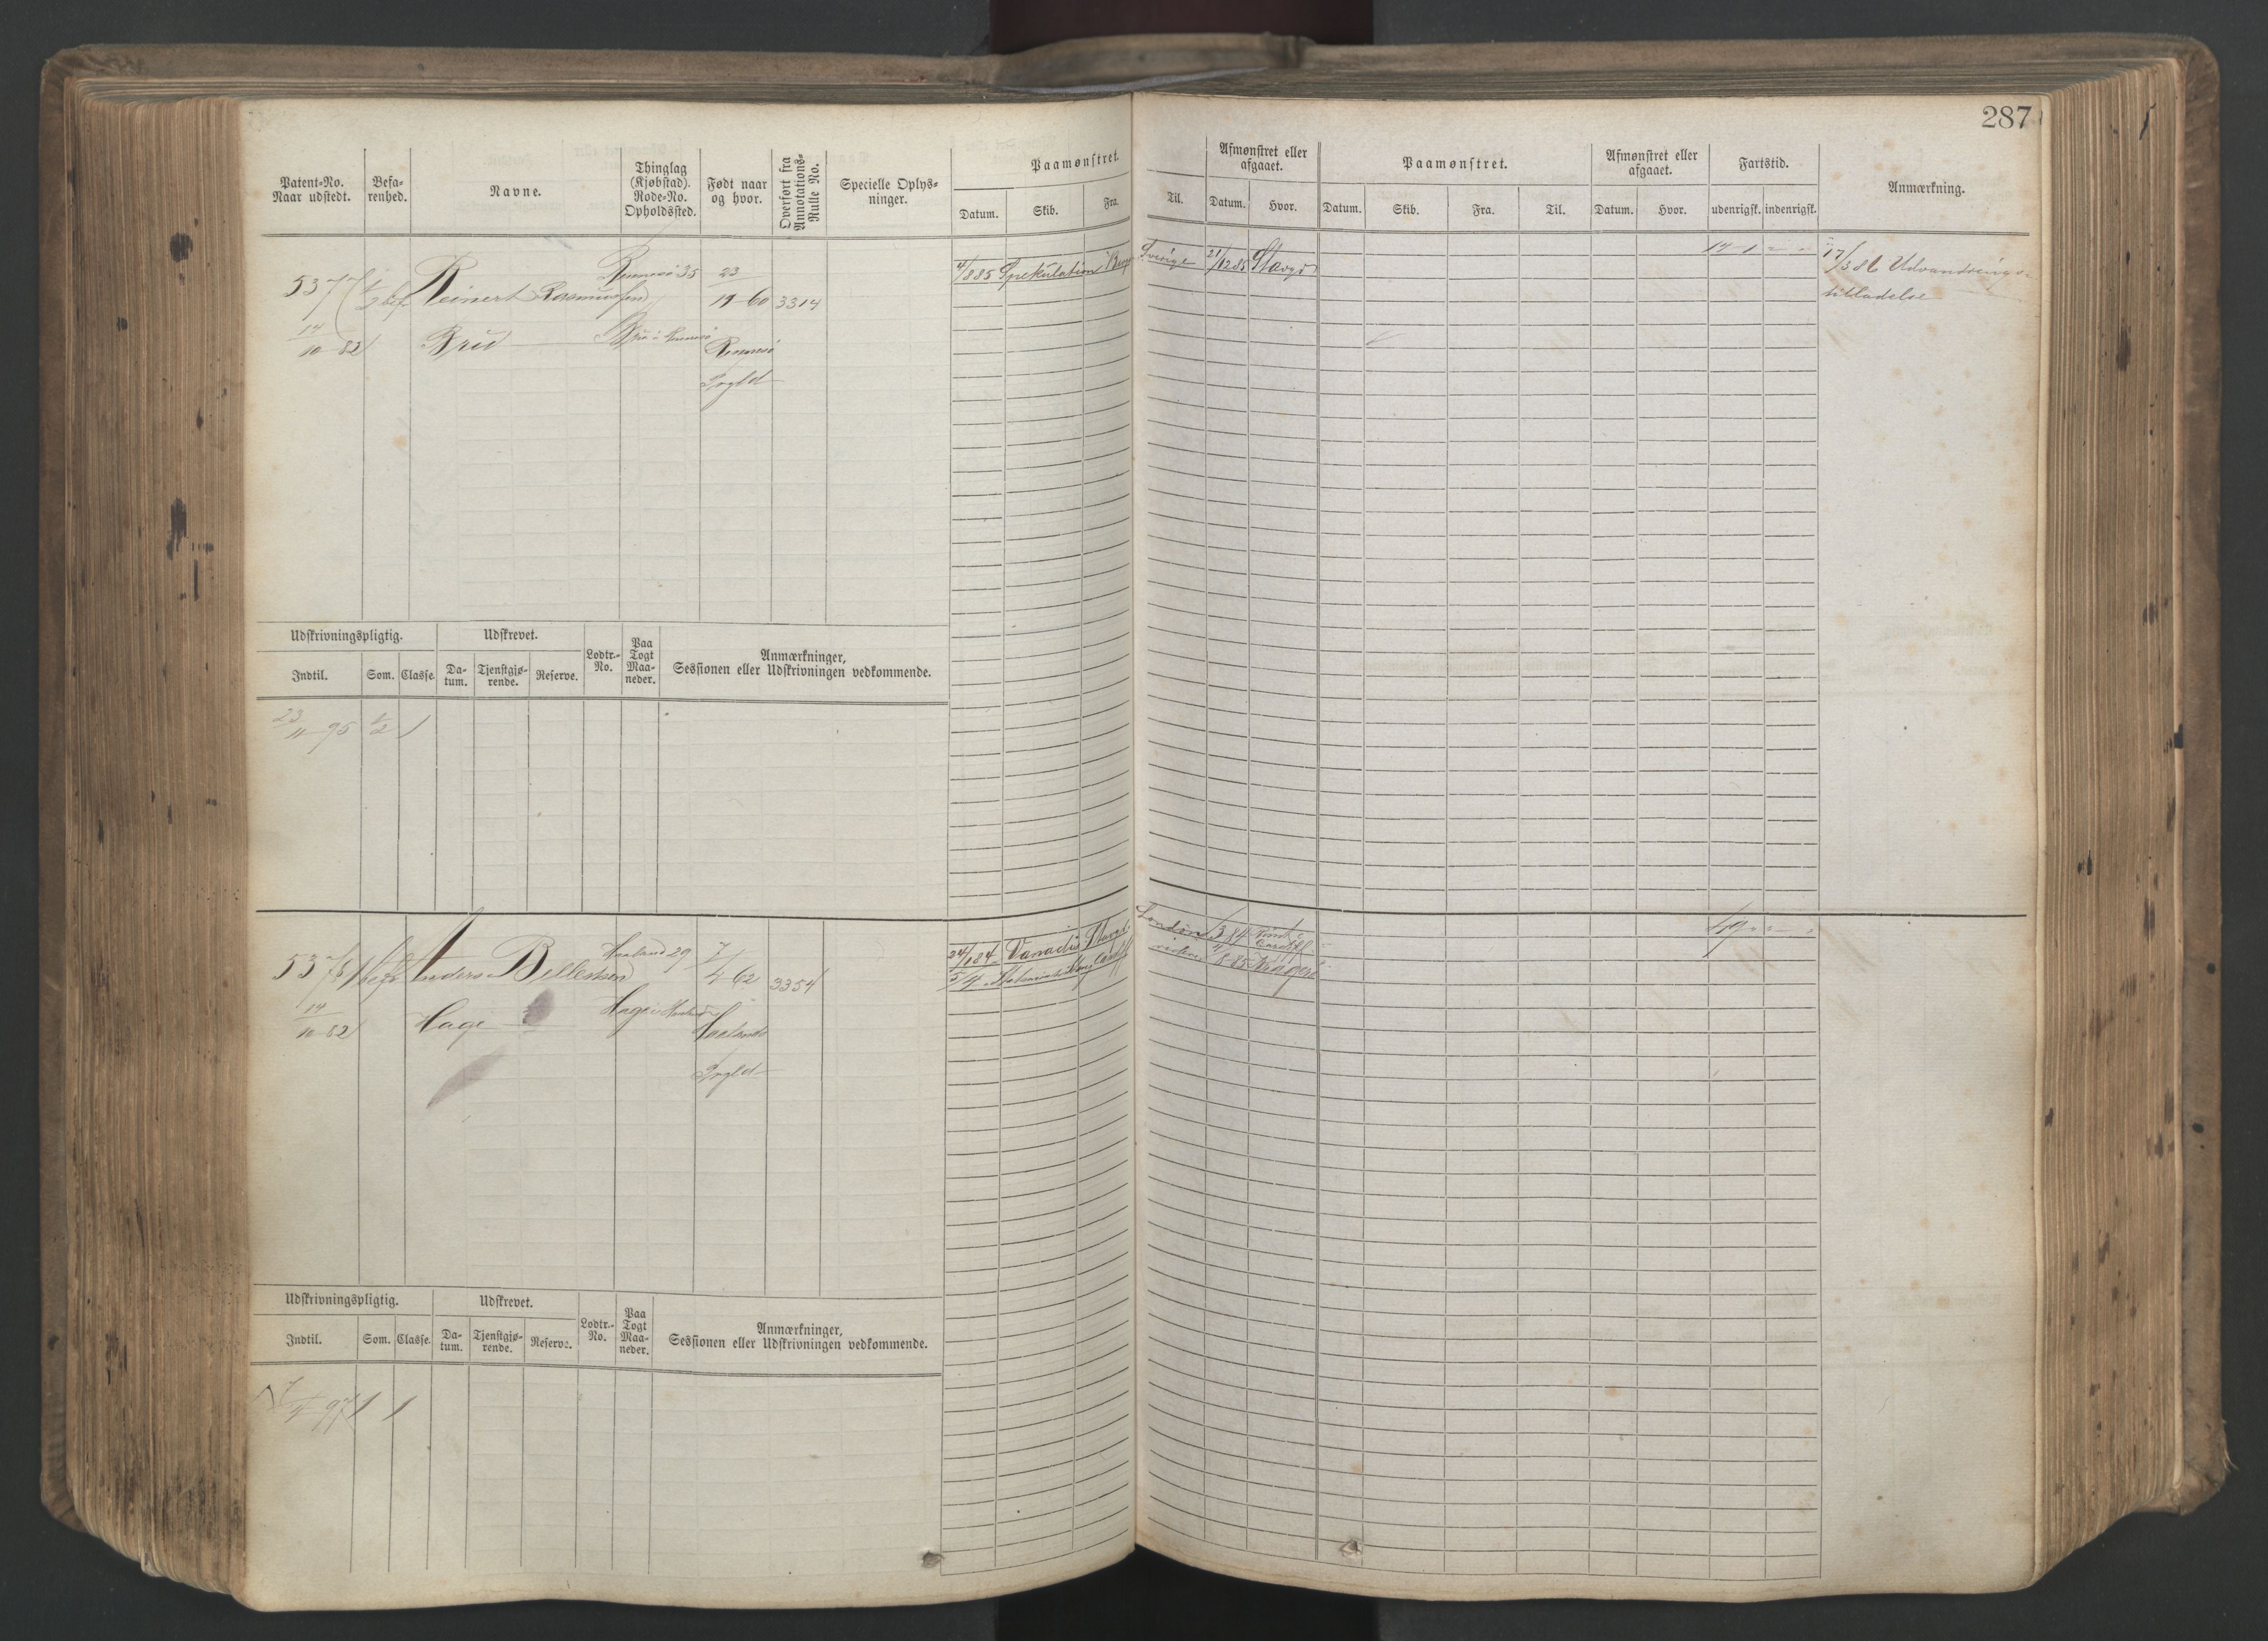 287
Patent-No.
Naar udstedt.
Befa-
renhed.
Navne.
Thinglag
(Kjøbstad).
Rode-No.
Opholdssted.
Født naar
og hvor.
Overført fra
Annotations-
Rulle No.
Specielle Oplys-
ninger.
Paamønstret.
Datum.
Skib.
Fra.
Til.
Afmønstret eller
afgaaet.
Datum.
Hvor.
Paamønstret.
Datum.
Skib.
Fra.
Til.
Afmønstret eller
afgaaet.
Datum.
Hvor.
Fartstid.
udenrigsk.
indenrigsk.
Anmærkning.
5377
14
10 82
Reinert Rasmussen
Bru
35
23
11 60
Sogld
3314
4/885 Spekulation
Sverige
Stavgr
17/386 Udvandrings-
tilladelse
Udskrivningspligtig.
Indtil.
Som.
Classe.
Udskrevet.
Da-
tum.
Tjenstgjø-
rende.
Reserve.
Lodtr.-
No.
Paa
Togt
Maa-
neder.
Anmærkninger,
Sessionen eller Udskrivningen vedkommende.
23
11 95
1/2
1
5378
14
10 82
Anders Billesen
Hage
Haaland 29
7
4 62
Haaland
Sogld
3354
Vanadis
London
Udskrivningspligtig.
Indtil.
Som.
Classe.
Udskrevet.
Da-
tum.
Tjenstgjø-
rende.
Reserve.
Lodtr.-
No.
Paa
Togt
Maa-
neder.
Anmærkninger,
Sessionen eller Udskrivningen vedkommende.
7
4 97
1
1